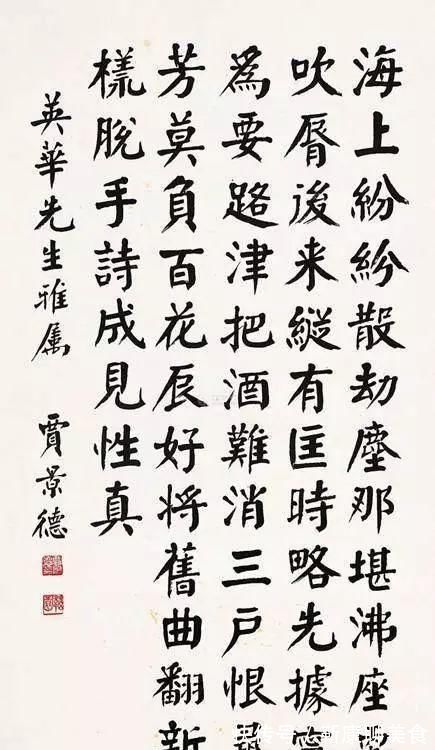 海上紛紛散劫塵那堪沸座
吹脣後来縱有匡時略先據
為要路津把酒難消三戶恨
芳莫負百花辰好將舊曲翻新
樣脫手詩成見性真
英華先生雅屬 賈景德
传号 聊美食